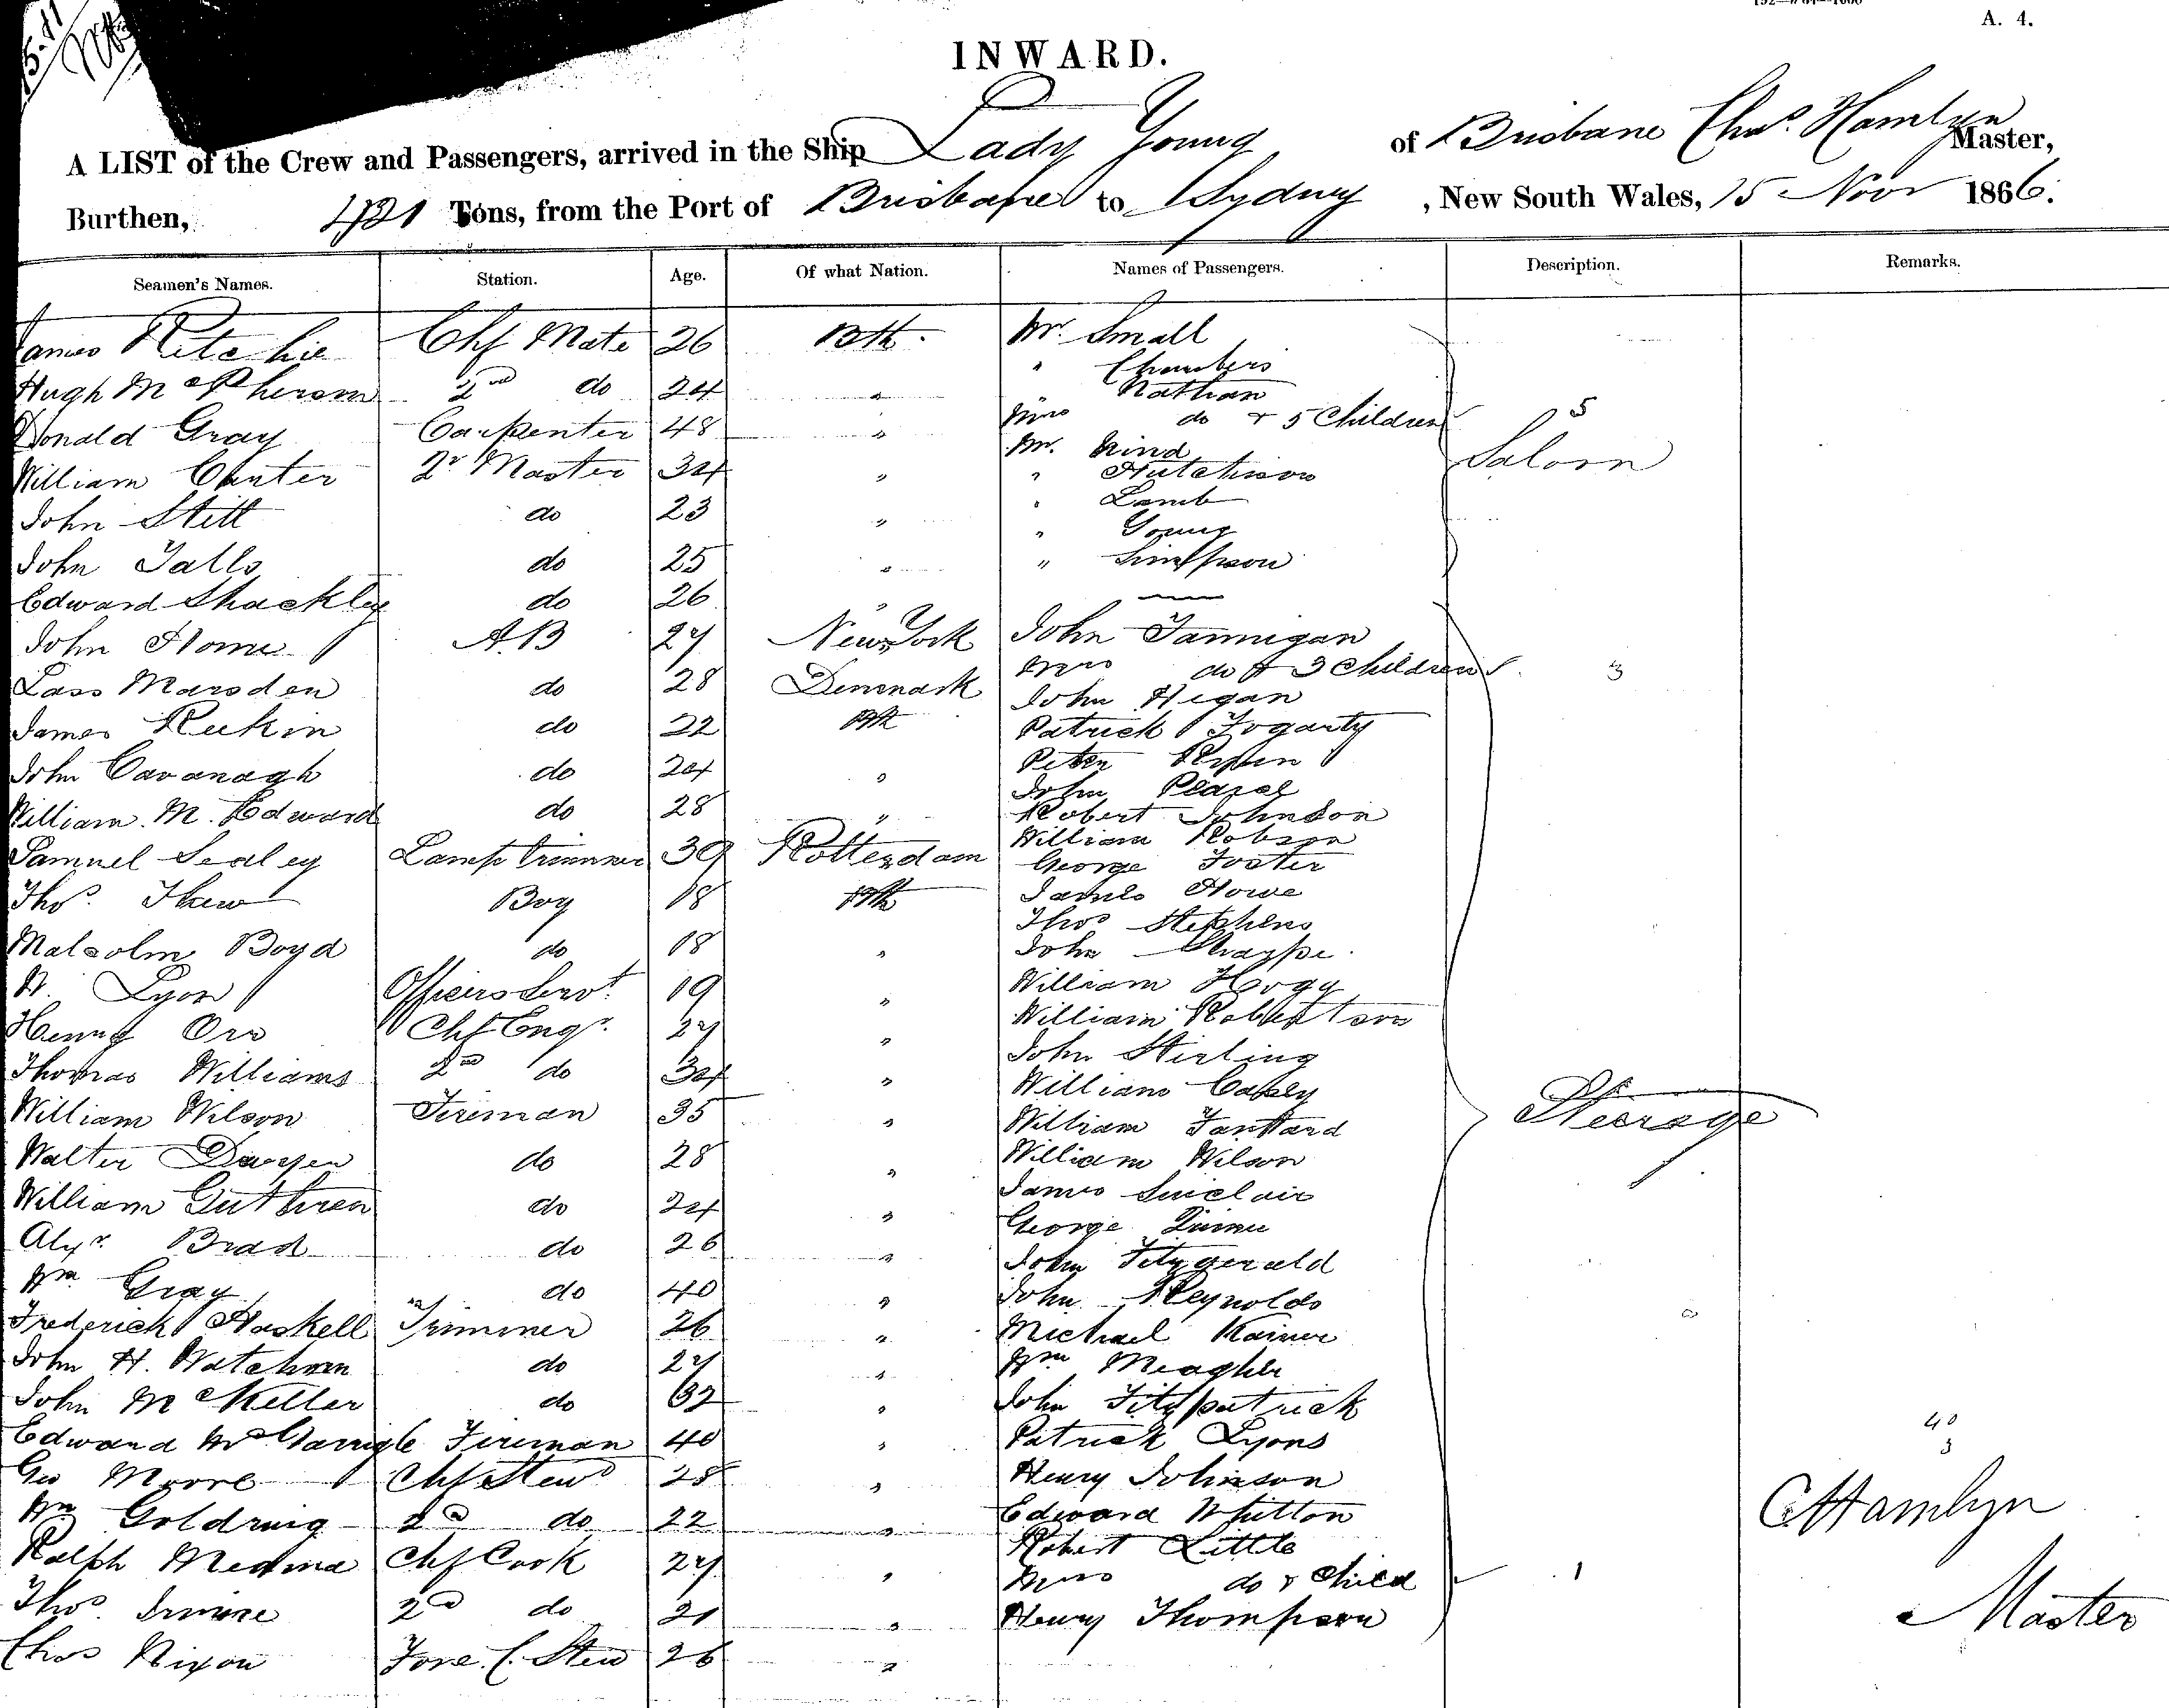 A. 4.
INWARD.
A LIST of the Crew and Passengers, arrived in the Ship Lady Young of Brisbane Chas. Hamlyn Master,
Burthen, 421 Tons, from the Port of Brisbane to Sydney, New South Wales, 15 Novr 1866.
Seamen's Names. Station. Age. Of what Nation. Names of Passengers. Description. Remarks.
James Ritchie Chf Mate 26 Bth. Mr. Small
" Chambers
Hugh McPherson 2nd do 24 " " Nathan
Mrs do + 5 Children 5
Donald Gray Carpenter 48 " Mr. Hind Saloon
William Canter Qr Master 34 " " Hutchison
John Stitt do 23 " " Lamb
" Young
John Talls do 25 " " Simpson
Edward Shackley do 26 "
John Home AB 27 New York John Fannigan
Mrs do & 3 Children 3
Lass Marsden do 28 Denmark John Hegan
James Ruckin do 22 Bth Patrick Fogarty
John Cavanagh do 24 " Peter
John Pearce
William M. Edward do 28 " Robert Johnson
William Robson
Samuel Sealey Lamp trimmer 39 Rotterdam George Foster
Thos. Skew Boy 18 Bth James Howe
Thos Stephens
Malcolm Boyd do 18 " John Sharpe.
Lyon Officers Servt. 19 " William Hogg
Henry Orr Chf Engr. 27 " William Robertson
John Stirling
Thomas Williams 2nd do 34 " William Casey
William Wilson Fireman 35 " William Steerage
Walter do 28 " William Wilson
William Guthrie do 24 " James Sinclair
George
Alexr. Brad do 26 " John Fitzgerald
Wm Gray do 40 " John Reynolds
Frederick Haskell Trimmer 26 " Michael Kainer
John H. Watchorn do 27 " Wm Meagher
John McKellar do 32 " John Fitzpatrick
Edward McGarrigle Fireman 40 " Patrick Lyons 40
3
Geo Moore Chf Stewd 28 " Henry Johnson
Wm Goldring 2d do 22 " Edward Whitton C Hamlyn
Robert Little
Ralph Medina Chf Cook 27 " Mrs do & Child 1
Thos. Irvine 2d do 21 " Henry Thompson Master
Chas Nixon Fore C. Stew 26 "